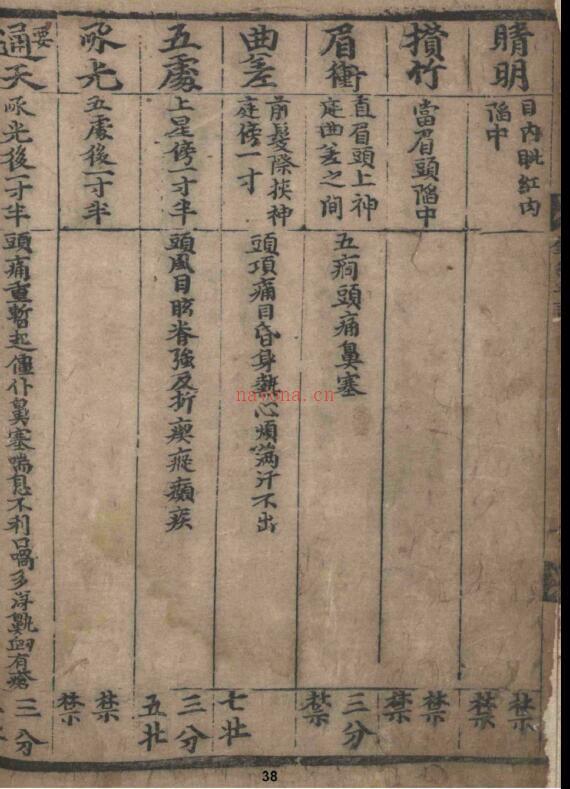 睛明
目內眦紅肉
陷中
禁
禁
攅竹
當眉頭陷中
禁
禁
眉衝
直眉頭上神
庭曲差之間
五癇頭痛鼻塞
三分
禁
曲差
前髮際挾神
庭傍一寸
頭項痛目昏身熱心煩滿汗不出
七壮
五處
上星傍一寸半
頭風目眩脊強反折瘈瘲癲疾
三分
五壮
承光
五處後一寸半
禁
禁
要
通天
承光後一寸半
頭痛重暫起僵仆鼻塞喘息不利口喎多涕鼽衄有瘡
三分
nayona.cn
38